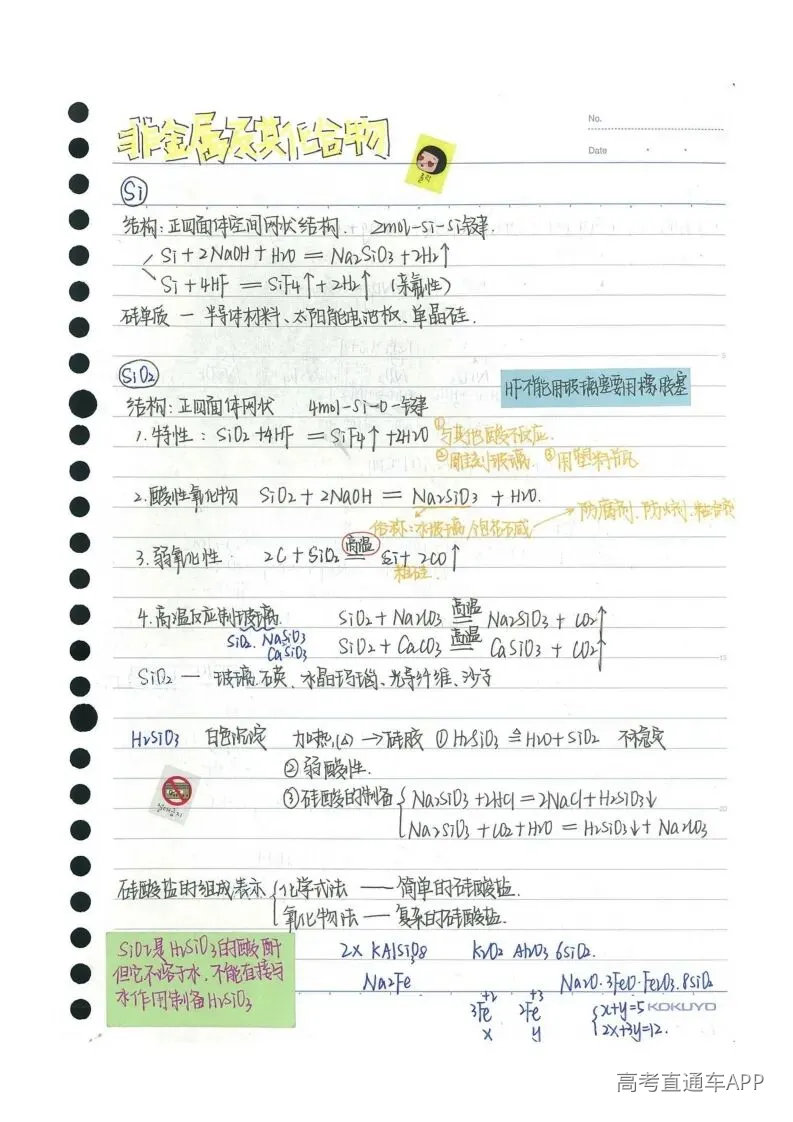 非金属及其化合物
No.
Date
Si
结构:正四面体空间网状结构. 2mol-Si-Si键.
Si+2NaOH+H2O = Na2SiO3+2H2↑
Si+4HF = SiF4↑+2H2↑ (亲氟性)
硅单质 — 半导体材料、太阳能电池板、单晶硅.
SiO2
HF不能用玻璃塞要用橡胶塞
结构:正四面体网状 4mol-Si-O-键
1.特性: SiO2+4HF = SiF4↑+2H2O ①与其他酸不反应.
②雕刻玻璃. ③用塑料瓶
2.酸性氧化物 SiO2+2NaOH = Na2SiO3+H2O.
俗称:水玻璃/泡花碱 → 防腐剂.防火剂.粘合剂
3.弱氧化性. 2C+SiO2 高温 Si+2CO↑
粗硅.
4.高温反应制玻璃. SiO2+Na2CO3 高温 Na2SiO3+CO2↑
SiO2. NaSiO3
CaSiO3
SiO2+CaCO3 高温 CaSiO3+CO2↑
SiO2 — 玻璃.石英、水晶玛瑙、光导纤维、沙子
H2SiO3 白色沉淀 加热(△)→硅胶 ①H2SiO3 ≙ H2O+SiO2 不稳定
②弱酸性.
③硅酸的制备 Na2SiO3+2HCl=2NaCl+H2SiO3↓
Na2SiO3+CO2+H2O = H2SiO3↓+Na2CO3
硅酸盐的组成表示 化学式法 — 简单的硅酸盐.
氧化物法 — 复杂的硅酸盐.
SiO2是H2SiO3的酸酐
但它不溶于水,不能直接与
水作用制备H2SiO3
2x KAlSi3O8 K2O2 Al2O3 6SiO2.
Na2Fe Na2O·3FeO·Fe2O3·8SiO2
+2 +3
3Fe 2Fe x+y=5
x y 2x+3y=12.
KOKUYO
高考直通车APP